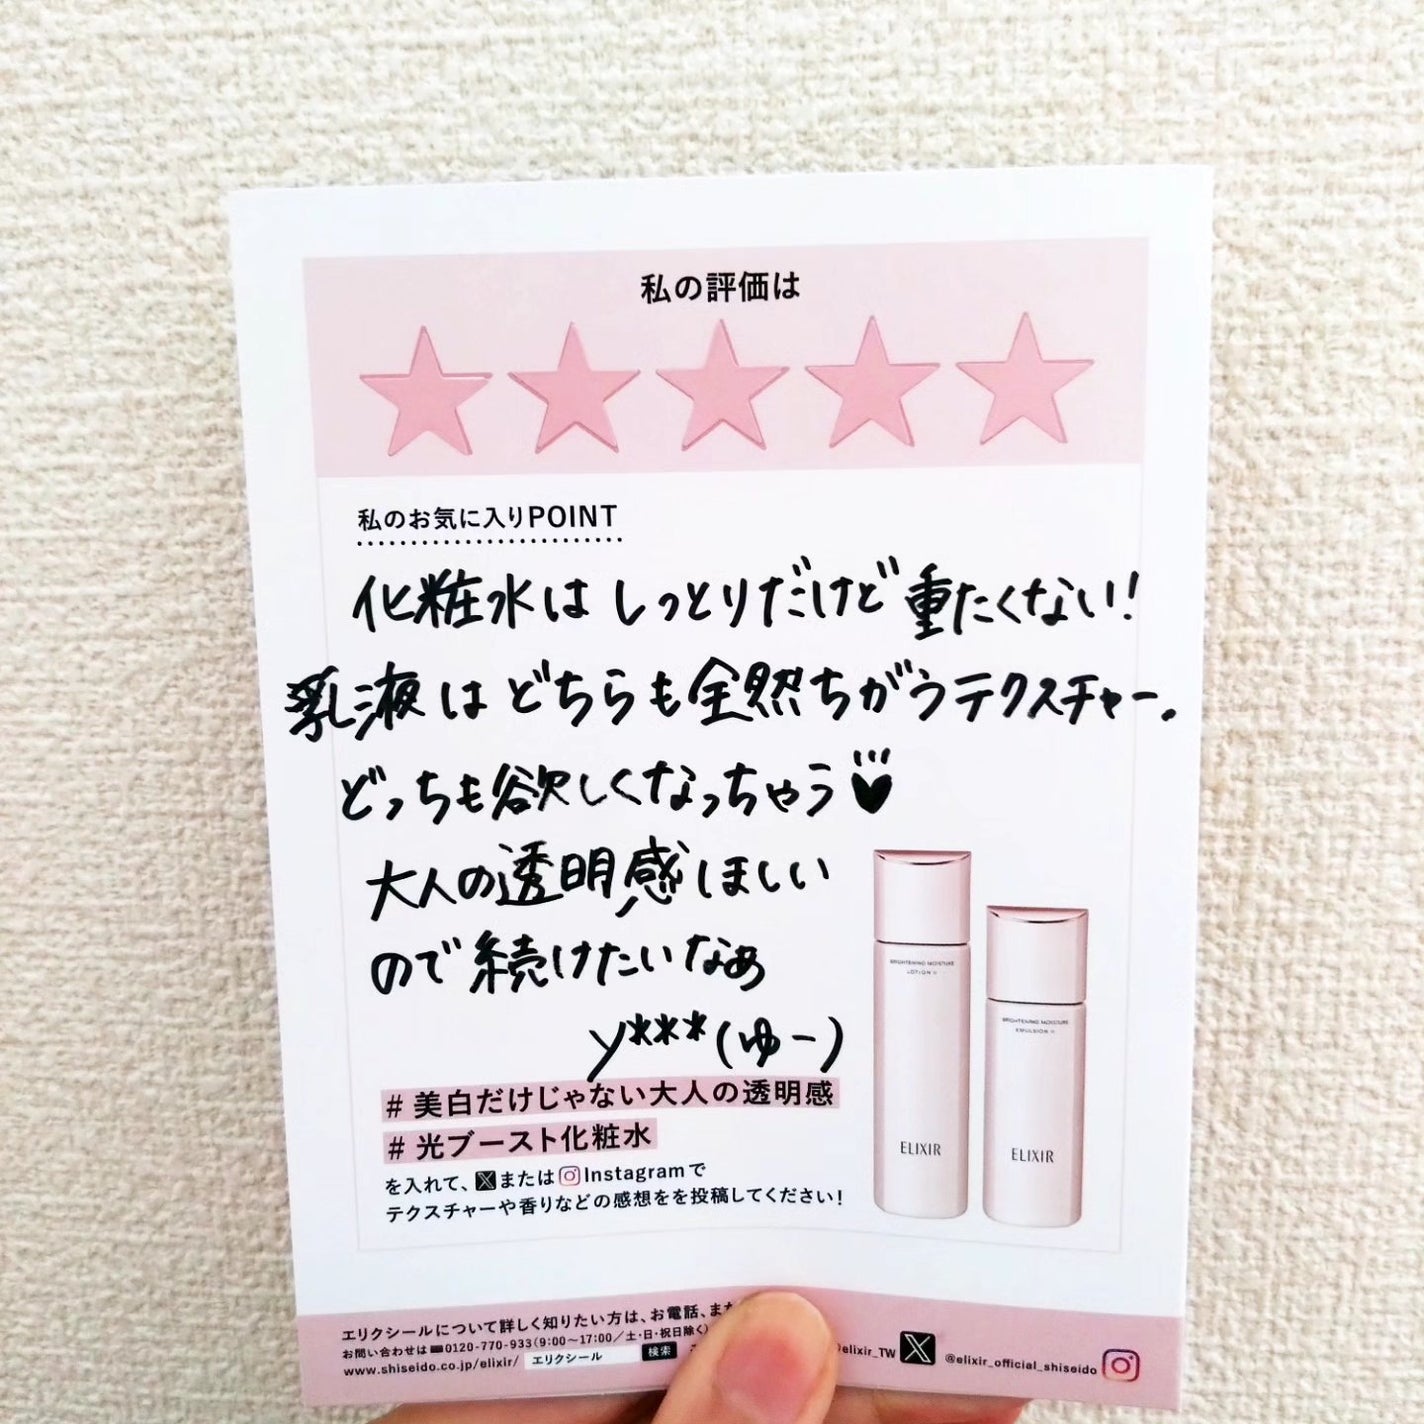 私の評価は
私のお気に入りPOINT
化粧水はしっとりだけど重たくない!
乳液はどちらも全然ちがうテクスチャー。
どっちも欲しくなっちゃう
大人の透明感ほしい
ので続けたいなぁ
y***(ゆー)
BRIGHTENING MOISTURE
LOTION II
BRIGHTENING MOISTURE
EMULSION II
ELIXIR
ELIXIR
# 美白だけじゃない大人の透明感
# 光ブースト化粧水
を入れて、XまたはInstagramで
テクスチャーや香りなどの感想をを投稿してください!
エリクシールについて詳しく知りたい方は、お電話、また
お問い合わせは 0120-770-933(9:00〜17:00/土・日・祝日除く)
www.shiseido.co.jp/elixir/ エリクシール 検索
elixir_TW X @elixir_official_shiseido